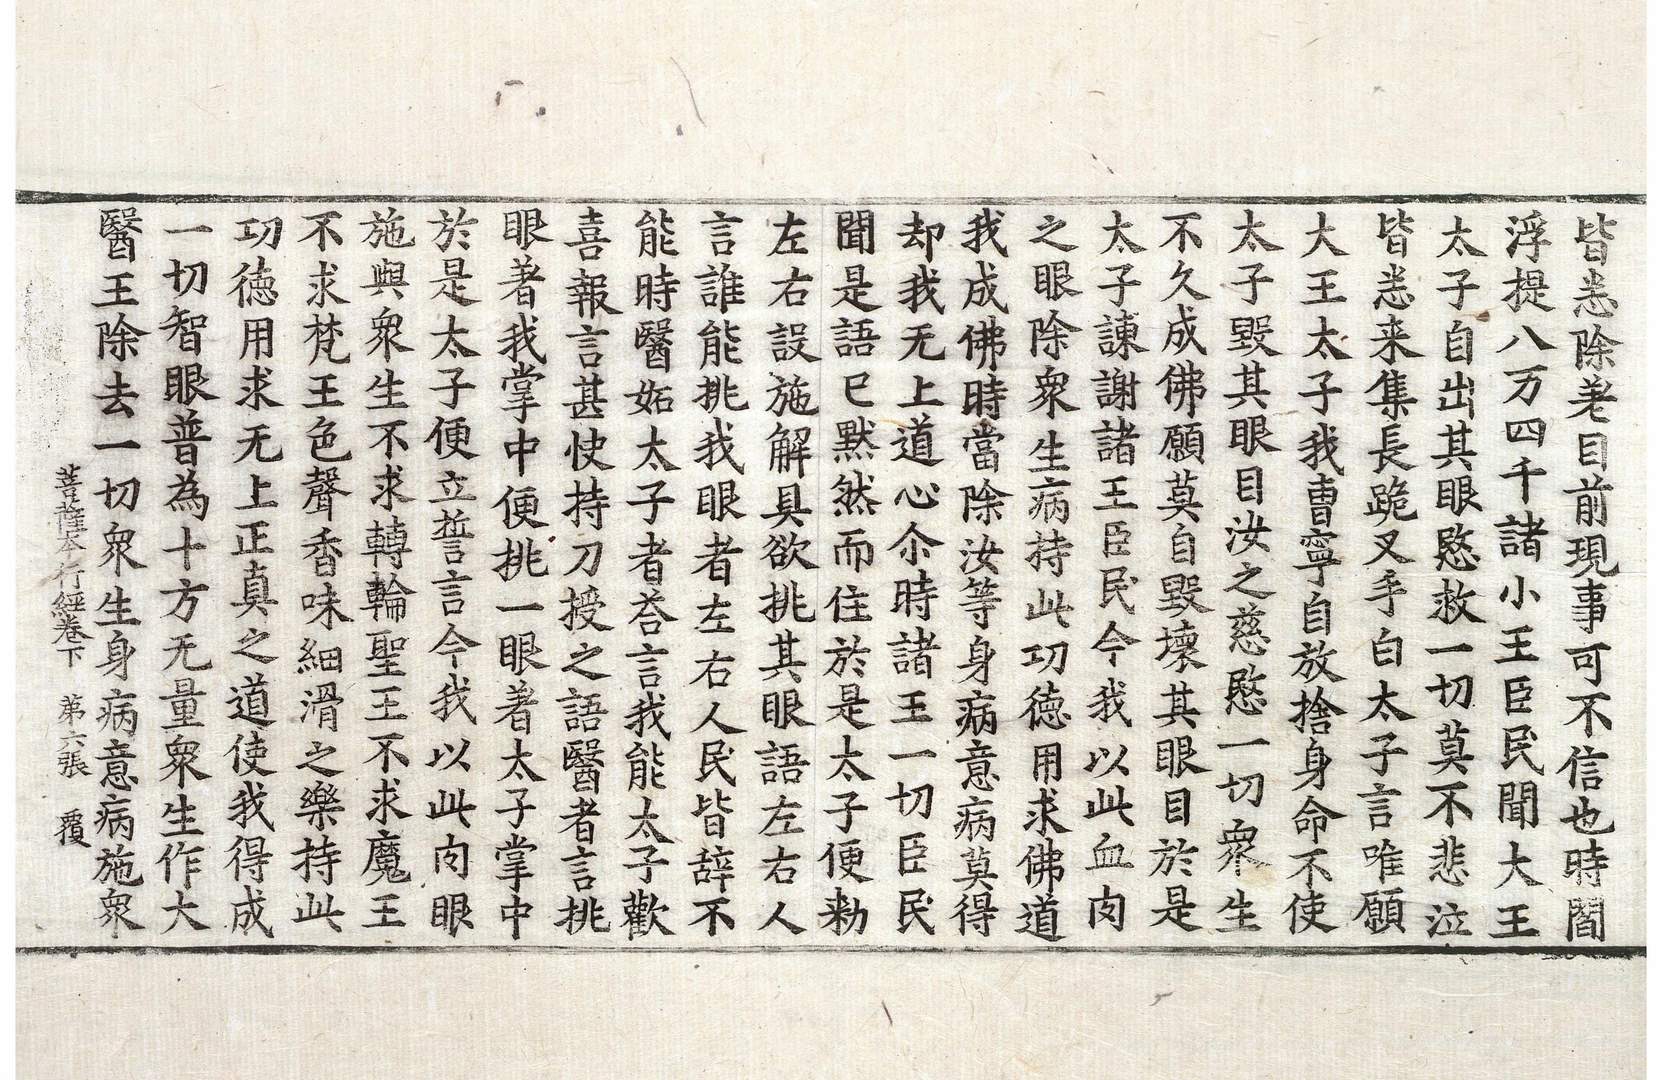 皆悉除差目前現事可不信也時閻
浮提八万四千諸小王臣民聞大王
太子自出其眼慜救一切莫不悲泣
皆悉来集長跪叉手白太子言唯願
大王太子我曺寧自放捨身命不使
太子毀其眼目汝之慈慜一切衆生
不久成佛願莫自毀壞其眼目於是
太子諫謝諸王臣民今我以此血肉
之眼除衆生病持此功德用求佛道
我成佛時當除汝等身病意病莫得
却我无上道心尒時諸王一切臣民
聞是語已默然而住於是太子便勑
左右設施解具欲挑其眼語左右人
言誰能挑我眼者左右人民皆辞不
能時醫妬太子者荅言我能太子歡
喜報言甚快持刀授之語醫者言挑
眼著我掌中便挑一眼著太子掌中
於是太子便立誓言今我以此肉眼
施與衆生不求轉輪聖王不求魔王
不求梵王色聲香味細滑之樂持此
功德用求无上正真之道使我得成
一切智眼普為十方无量衆生作大
醫王除去一切衆生身病意病施衆
菩薩本行經卷下 第六張 覆